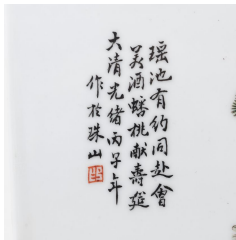 瑶池有约同赴會
美酒蟠桃献寿筵
大清光绪丙子年
作於珠山